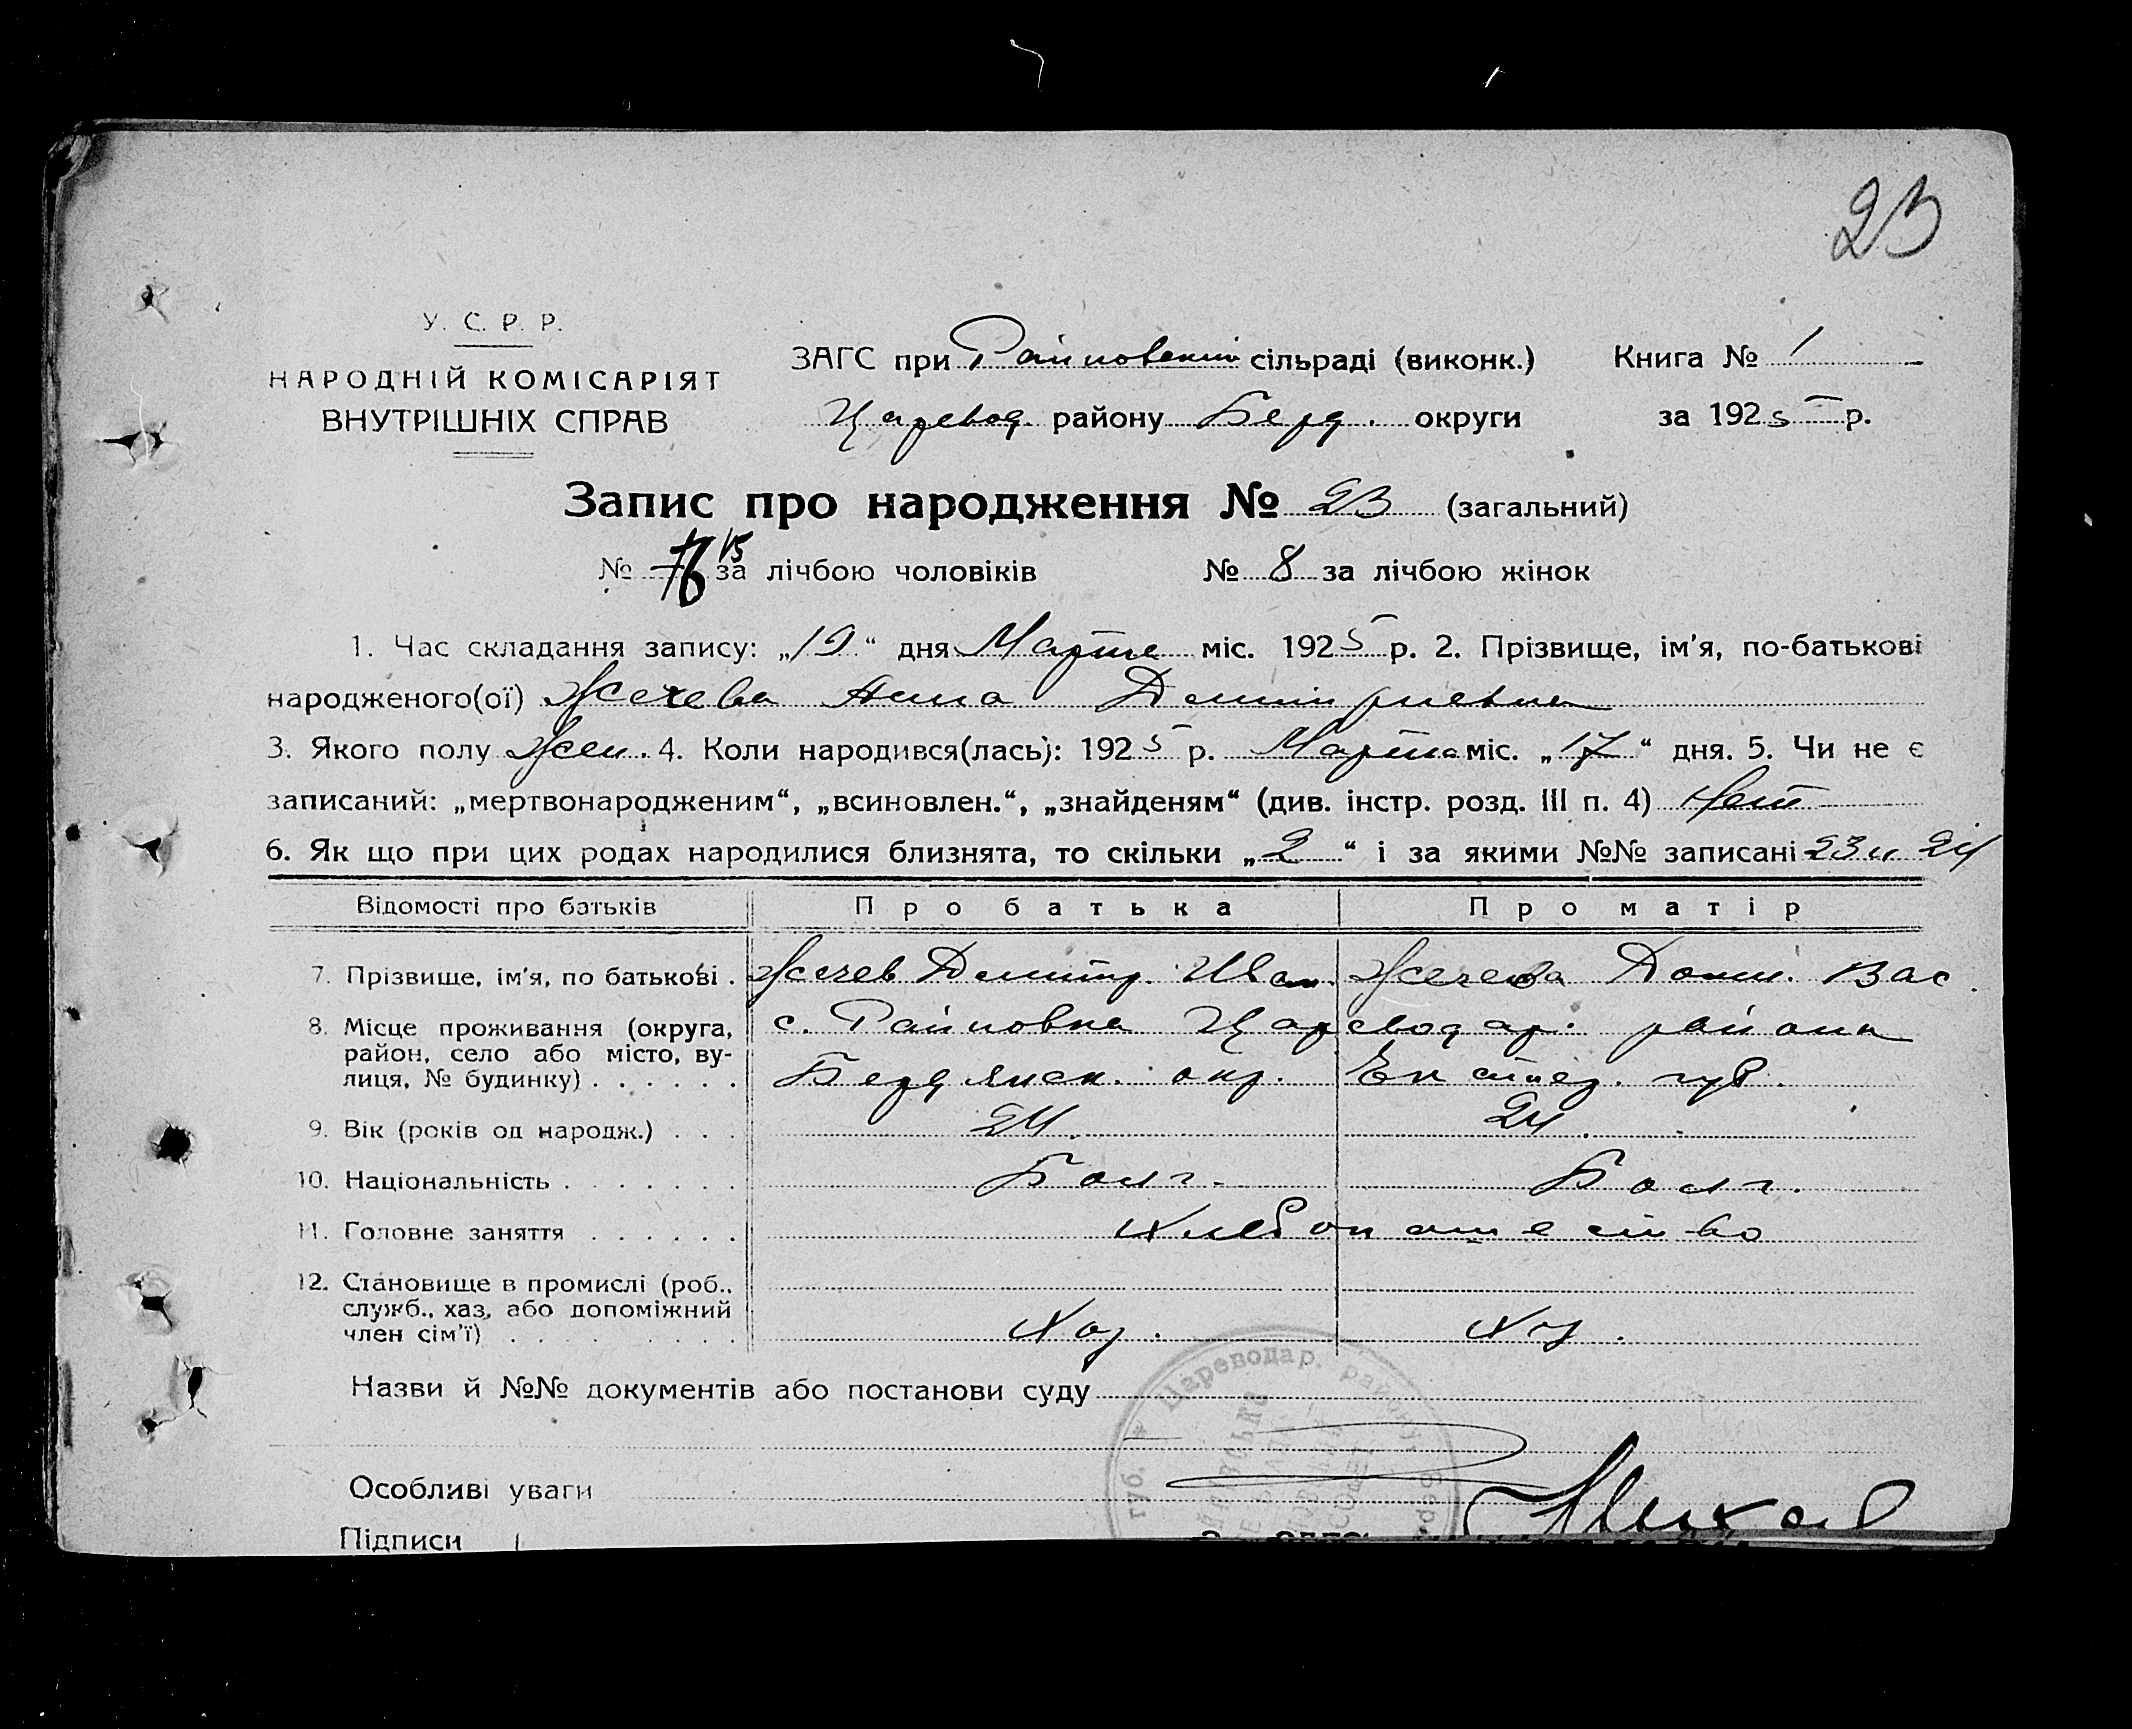 23
У. С. Р. Р.
НАРОДНІЙ КОМІСАРІЯТ
ВНУТРІШНІХ СПРАВ
ЗАГС при Райновский сільраді (виконк.) Книга № 1
Царевод. району Берд. округи за 1925 р.
Запис про народження № 23 (загальний)
№ 15 за лічбою чоловіків № 8 за лічбою жінок
1. Час складання запису: „19“ дня Марта міс. 1925 р. 2. Прізвище, ім'я, по-батькові
народженого(ої) Жечева Анна Димитриевна
3. Якого полу жен. 4. Коли народився(лась): 1925 р. Марта міс. „17“ дня. 5. Чи не є
записаний: „мертвонародженим“, „всиновлен.“, „знайденям“ (див. інстр. розд. III п. 4) Нет
6. Як що при цих родах народилися близнята, то скільки „2“ і за якими №№ записані 23 и 24
Відомості про батьків Про батька Про матір
7. Прізвище, ім'я, по батькові . Жечев Димитр. Иван. Жечева Домн. Вас.
8. Місце проживання (округа, с. Райновка Цареводар. района
район, село або місто, ву-
лиця, № будинку) . . . . . . Бердянск. окр. Екатер. губ.
9. Вік (років од народж.) . . . 24. 24.
10. Національність . . . . . . . Болг. Болг.
11. Головне заняття . . . . . . Хлебопашество
12. Становище в промислі (роб.,
служб., хаз, або допоміжний
член сім'ї) . . . . . . . . . Хоз. Хоз.
Назви й №№ документів або постанови суду
Цареводар. району Берд. губ.
Особливі уваги
Підписи